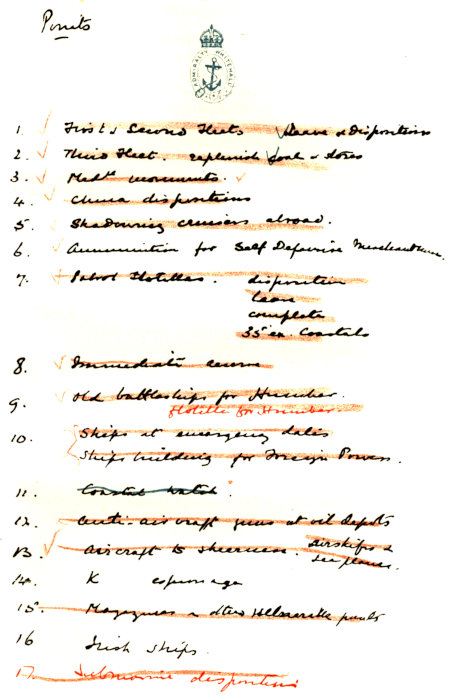 Points
ADMIRALTY WHITEHALL
1. First & Second Fleets Leave & Dispositions
2. Third Fleet. replenish coal & stores
3. Medtn movements.
4. China dispositions
5. Shadowing cruisers abroad.
6. Ammunition for Self Defensive Merchantmen.
7. Patrol Flotillas. disposition
leave
complete
35 ex. Coastals
8. Immediate reserve
9. Old battleships for Humber.
Flotilla for Humber
10. Ships at emergency dates
Ships building for Foreign Powers.
11. Coastal Watch.
12. Anti aircraft guns at oil depots
13. Aircraft to Sheerness. Airships &
Seaplanes.
14. K espionage
15. Magazines & other vulnerable points
16 Irish ships.
17. Submarine dispositions